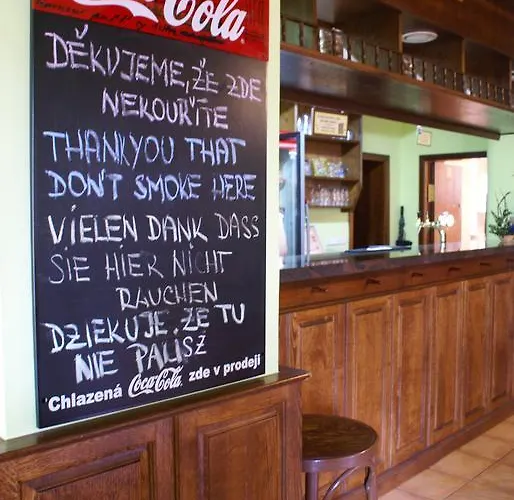 Coca-Cola
DĚKUJEME, ŽE ZDE
NEKOUŘÍTE
THANKYOU THAT
DON'T SMOKE HERE
VIELEN DANK DASS
SIE HIER NICHT
RAUCHEN
DZIEKUJE, ŻE TU
NIE PALISZ
Chlazená Coca-Cola zde v prodeji